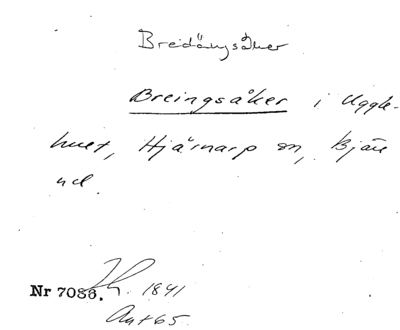 Bredängsåker
Breingsåker i Uggle-
hult, Hjärnarp sn, Bjäre
hd.
Nr 7086. 1841
Ant 65.